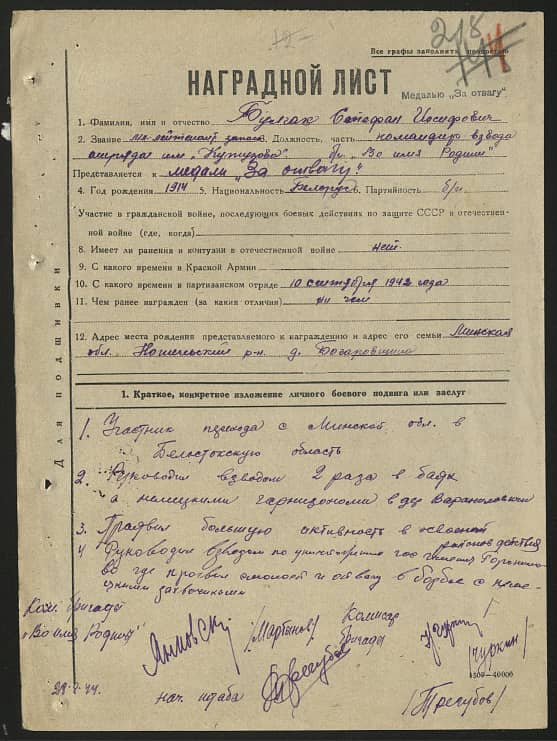 218
Все графы заполнять полностью
НАГРАДНОЙ ЛИСТ
Медалью „За отвагу“
1. Фамилия, имя и отчество Булгак Степан Иосифович
2. Звание мл. лейтенант запаса. Должность, часть командир взвода
отряда им „Кутузова“ бр. „Во имя Родины“
Представляется к медали „За отвагу“
4. Год рождения 1914 5. Национальность Белорус 6. Партийность б/п
Участие в гражданской войне, последующих боевых действиях по защите СССР и отечествен-
ной войне (где, когда)
8. Имеет ли ранения и контузии в отечественной войне нет.
9. С какого времени в Красной Армии
10. С какого времени в партизанском отряде 10 сентября 1942 года
11. Чем ранее награжден (за какия отличия) ни чем
12. Адрес места рождения представляемого к награждению и адрес его семьи Минская
обл. р-н. д.
Для подшивки
1. Краткое, конкретное изложение личного боевого подвига или заслуг
1. Участник перехода с Минской обл. в
Белостокскую область
2. Руководил взводом 2 раза в боях
с немецкими гарнизонами в д.д.
3. Проявил большую активность в
районов действия
4 Руководил взводом по
во где проявил смелость и отвагу в борьбе с неме-
цкими захватчиками
Ком. бригады
„Во имя Родины“
/Мартынов/
Комиссар
бригады
/Чуркин/
29 44.
нач. штаба
/Трегубов/